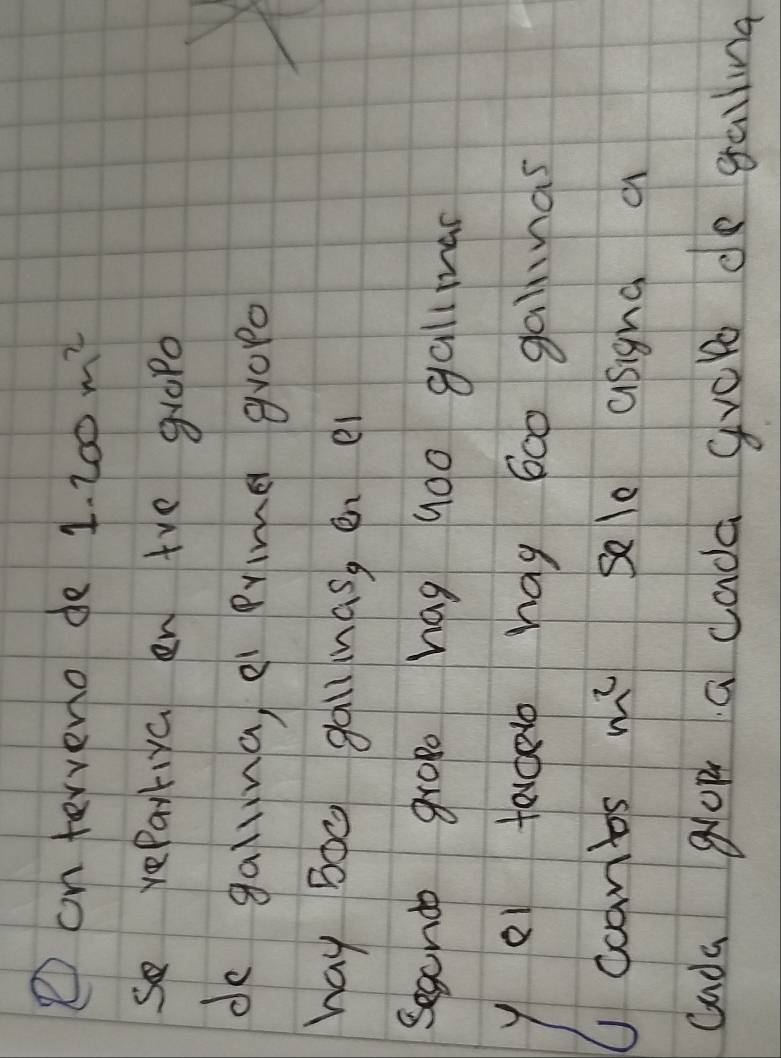 2 un terreno de 1.200 m²
se repartira en tre grupo
de gallina, el primer grupo
hay 500 gallinas, en el
segundo grupo hay 400 gallinas
y el tercero hay 600 gallinas
¿ cuantos m² se le asigna a
cada grupo a cada grupo de gallina